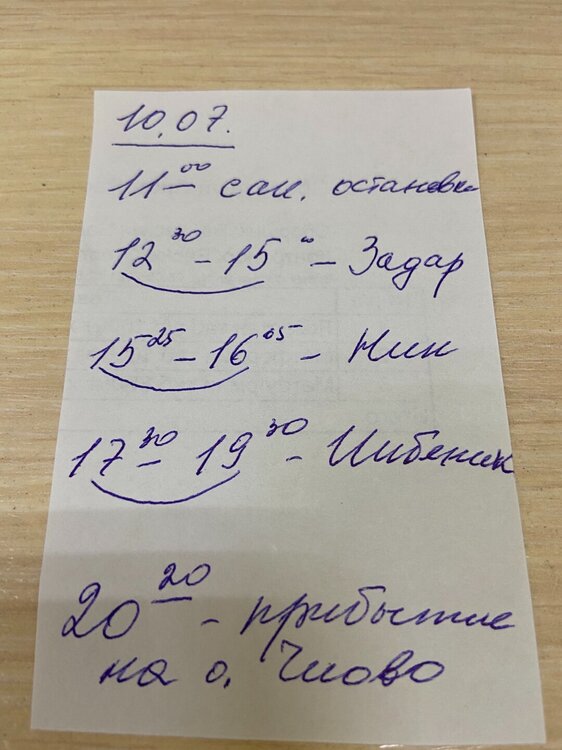 10.07.
11⁰⁰ сан. остановка
12³⁰ - 15⁰⁰ - Задар
15²⁵ - 16⁰⁵ - Нин
17³⁰ - 19³⁰ - Шибеник
20²⁰ - прибытие
на о. Чиово